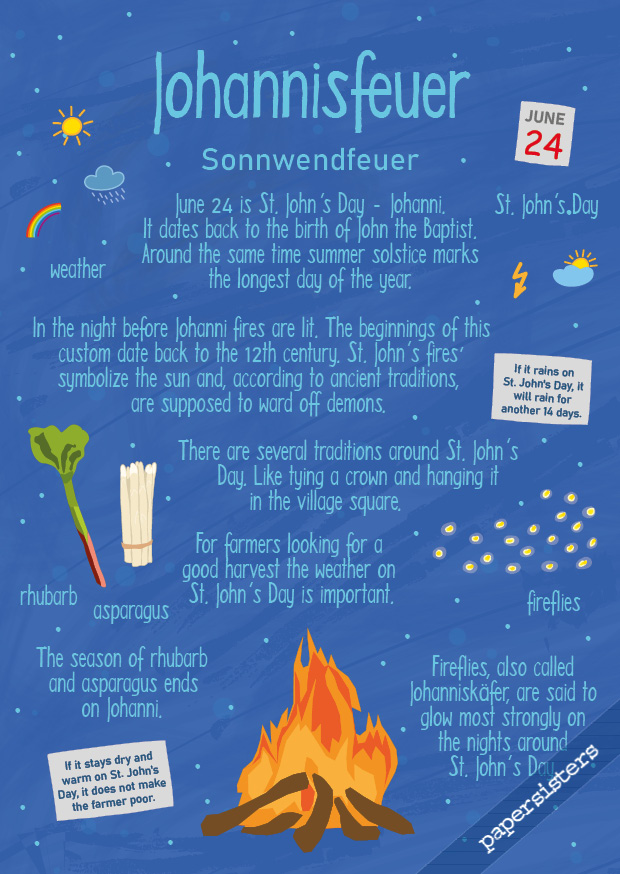 Johannisfeuer
Sonnwendfeuer
JUNE
24
St. John's Day
weather
June 24 is St. John's Day - Johanni.
It dates back to the birth of John the Baptist.
Around the same time summer solstice marks
the longest day of the year.
In the night before Johanni fires are lit. The beginnings of this
custom date back to the 12th century. St. John's fires'
symbolize the sun and, according to ancient traditions,
are supposed to ward off demons.
If it rains on
St. John's Day, it
will rain for
another 14 days.
There are several traditions around St. John's
Day. Like tying a crown and hanging it
in the village square.
For farmers looking for a
good harvest the weather on
St. John's Day is important.
rhubarb
asparagus
fireflies
The season of rhubarb
and asparagus ends
on Johanni.
Fireflies, also called
Johanniskäfer, are said to
glow most strongly on
the nights around
St. John's Day.
If it stays dry and
warm on St. John's
Day, it does not make
the farmer poor.
papersisters